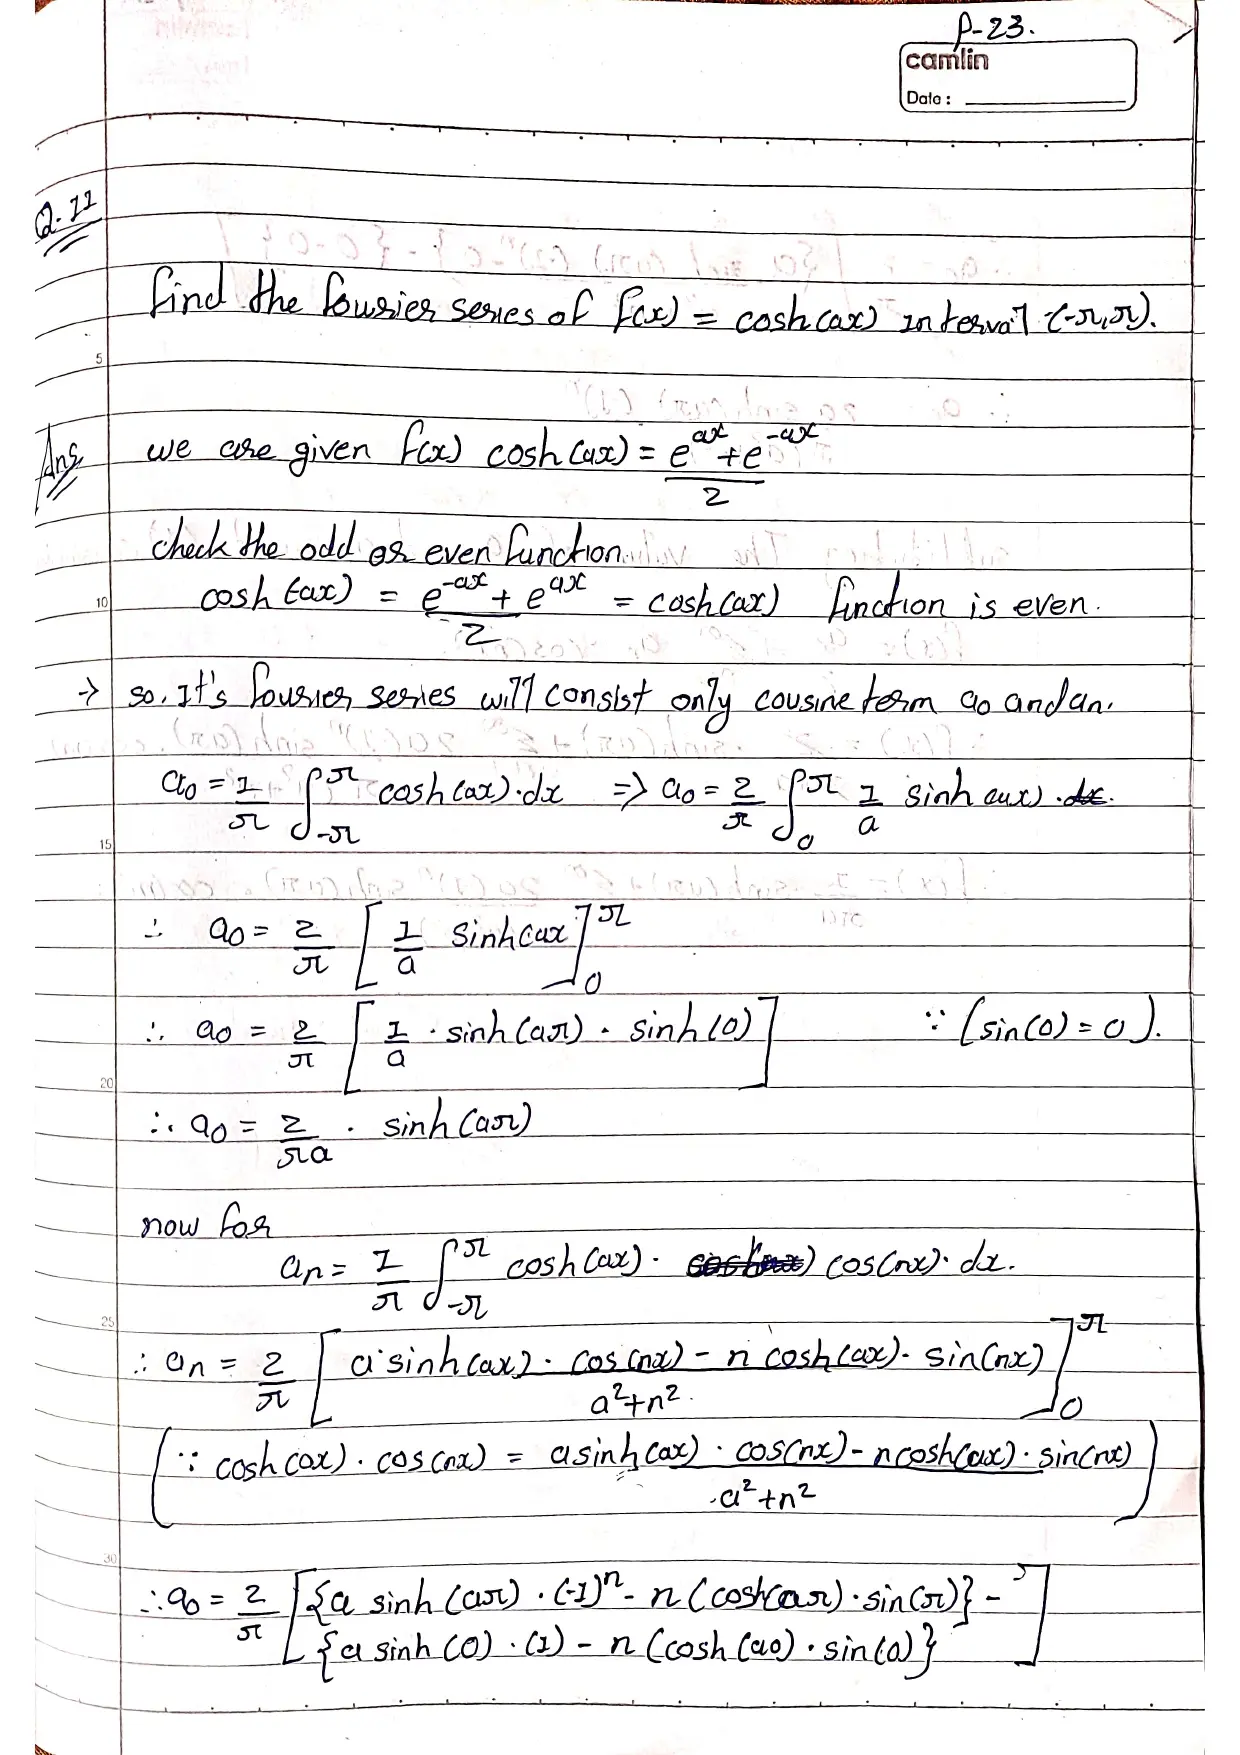 P-23.
camlin
Date :
Q. 11
find the fourier series of f(x) = cosh(ax) interval (-π,π).
5
Ans we are given f(x) cosh(ax) = e^ax + e^-ax / 2
check the odd or even function.
10 cosh(-ax) = e^-ax + e^ax / 2 = cosh(ax) function is even.
→ so. It's fourier series will consist only cousine term a0 and an.
a0 = 1/π ∫_-π^π cosh(ax)·dx => a0 = 2/π ∫_0^π 1/a sinh(ax).
15
∴ a0 = 2/π [ 1/a sinh(ax ]_0^π
∴ a0 = 2/π [ 1/a · sinh(aπ) - sinh(0) ] ∵ (sin(0) = 0).
20
∴ a0 = 2/πa · sinh(aπ)
now for
an = 1/π ∫_-π^π cosh(ax) · cos(nx)· dx.
25
∴ an = 2/π [ a sinh(ax) · cos(nx) - n cosh(ax)· sin(nx) / a²+n². ]_0^π
( ∵ cosh(ax) · cos(nx) = a sinh(ax) · cos(nx) - n cosh(ax) · sin(nx) / a²+n² )
30
∴ a0 = 2/π [ {a sinh(aπ) · (-1)^n - n (cosh(aπ) · sin(π)} -
{a sinh(0) · (1) - n (cosh(a0) · sin(0)} ]